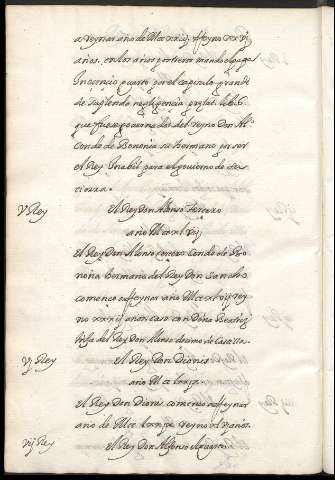 a reynar año de Mccxxiij Reyno xxvj
años, en los años postreros mando el papa
Inocencio quarto por el capitulo grandi
de suplenda negligencia prelat. lib. 6.
que fuese gouernador del reyno Don Al.
Conde de Bononia su hermano por ser
el Rey Inabil para el gouierno de su
tierra.
V Rey El Rey Don Alonso tercero
año Mccxlvij
El Rey Don Alonso tercero Conde de Bo
noña hermano del Rey Don Sancho
començo a Reynar año Mccxlvij rey
no xxxij años, caso con Doña Beatriz
hija del Rey Don Alonso decimo de Castilla.
Vj Rey El Rey Don Dionis
año Mcclxxix.
El Rey Don Dionis començo a Reynar
año de Mcclxxix reyno xlv años.
Vij Rey El Rey Don Alfonso el quarto